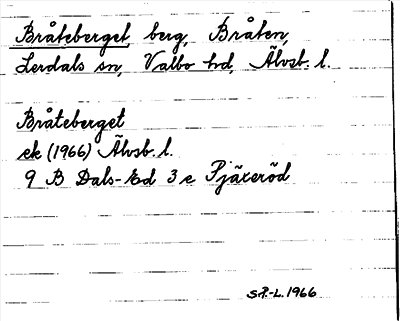 Bråteberget, berg, Bråten,
Lerdals sn, Valbo hd, Älvsb. l.
Bråteberget
ek (1966) Älvsb. l.
9 B Dals-Ed 3 e Pjäxeröd
S.R.-L. 1966